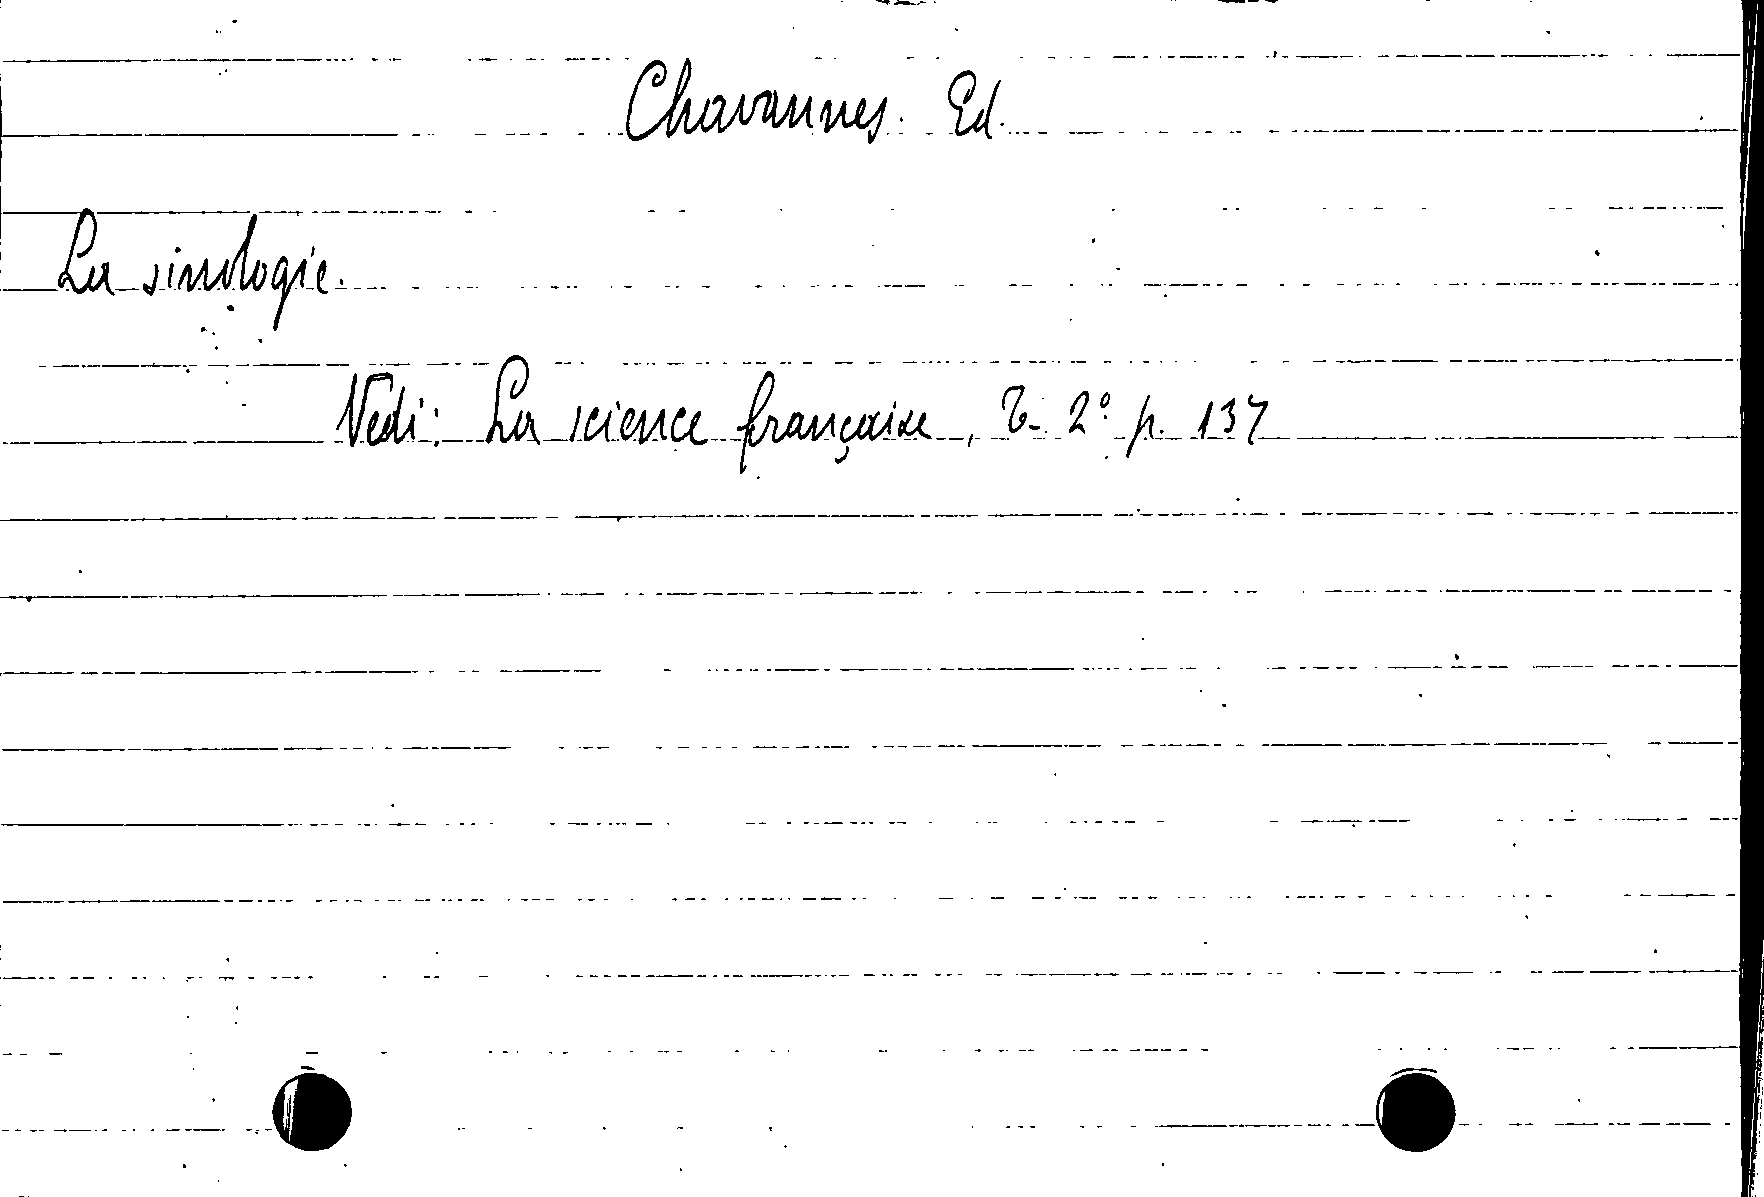 Chavannes. Ed.
La sinologie.
Vedi: La science française, T. 2° p. 137